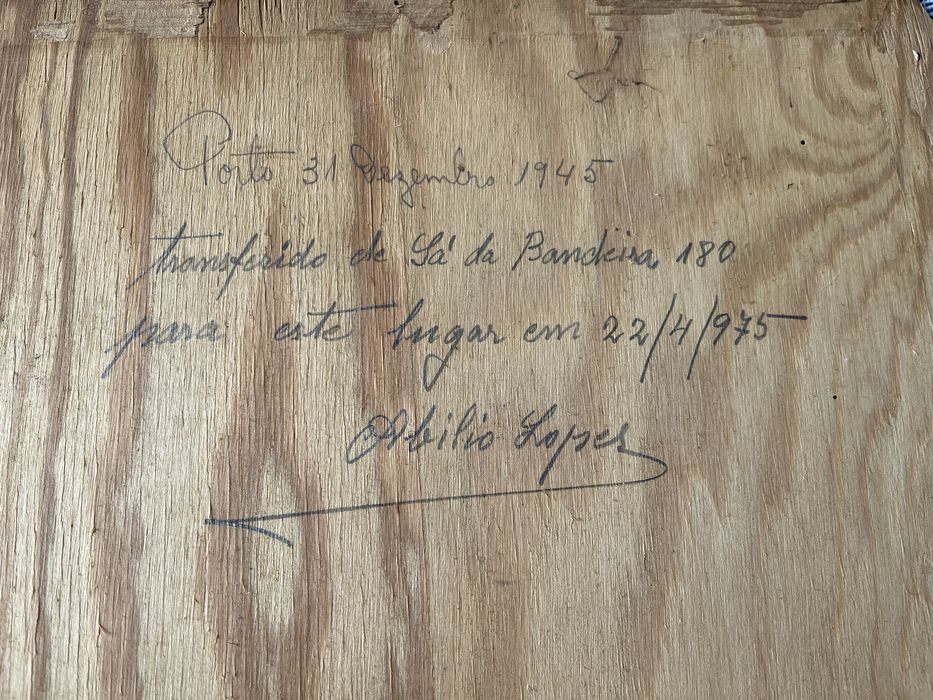 Porto 31 Dezembro 1945
transferido de Sá da Bandeira 180
para este lugar em 22/4/975
Abilio Lopes